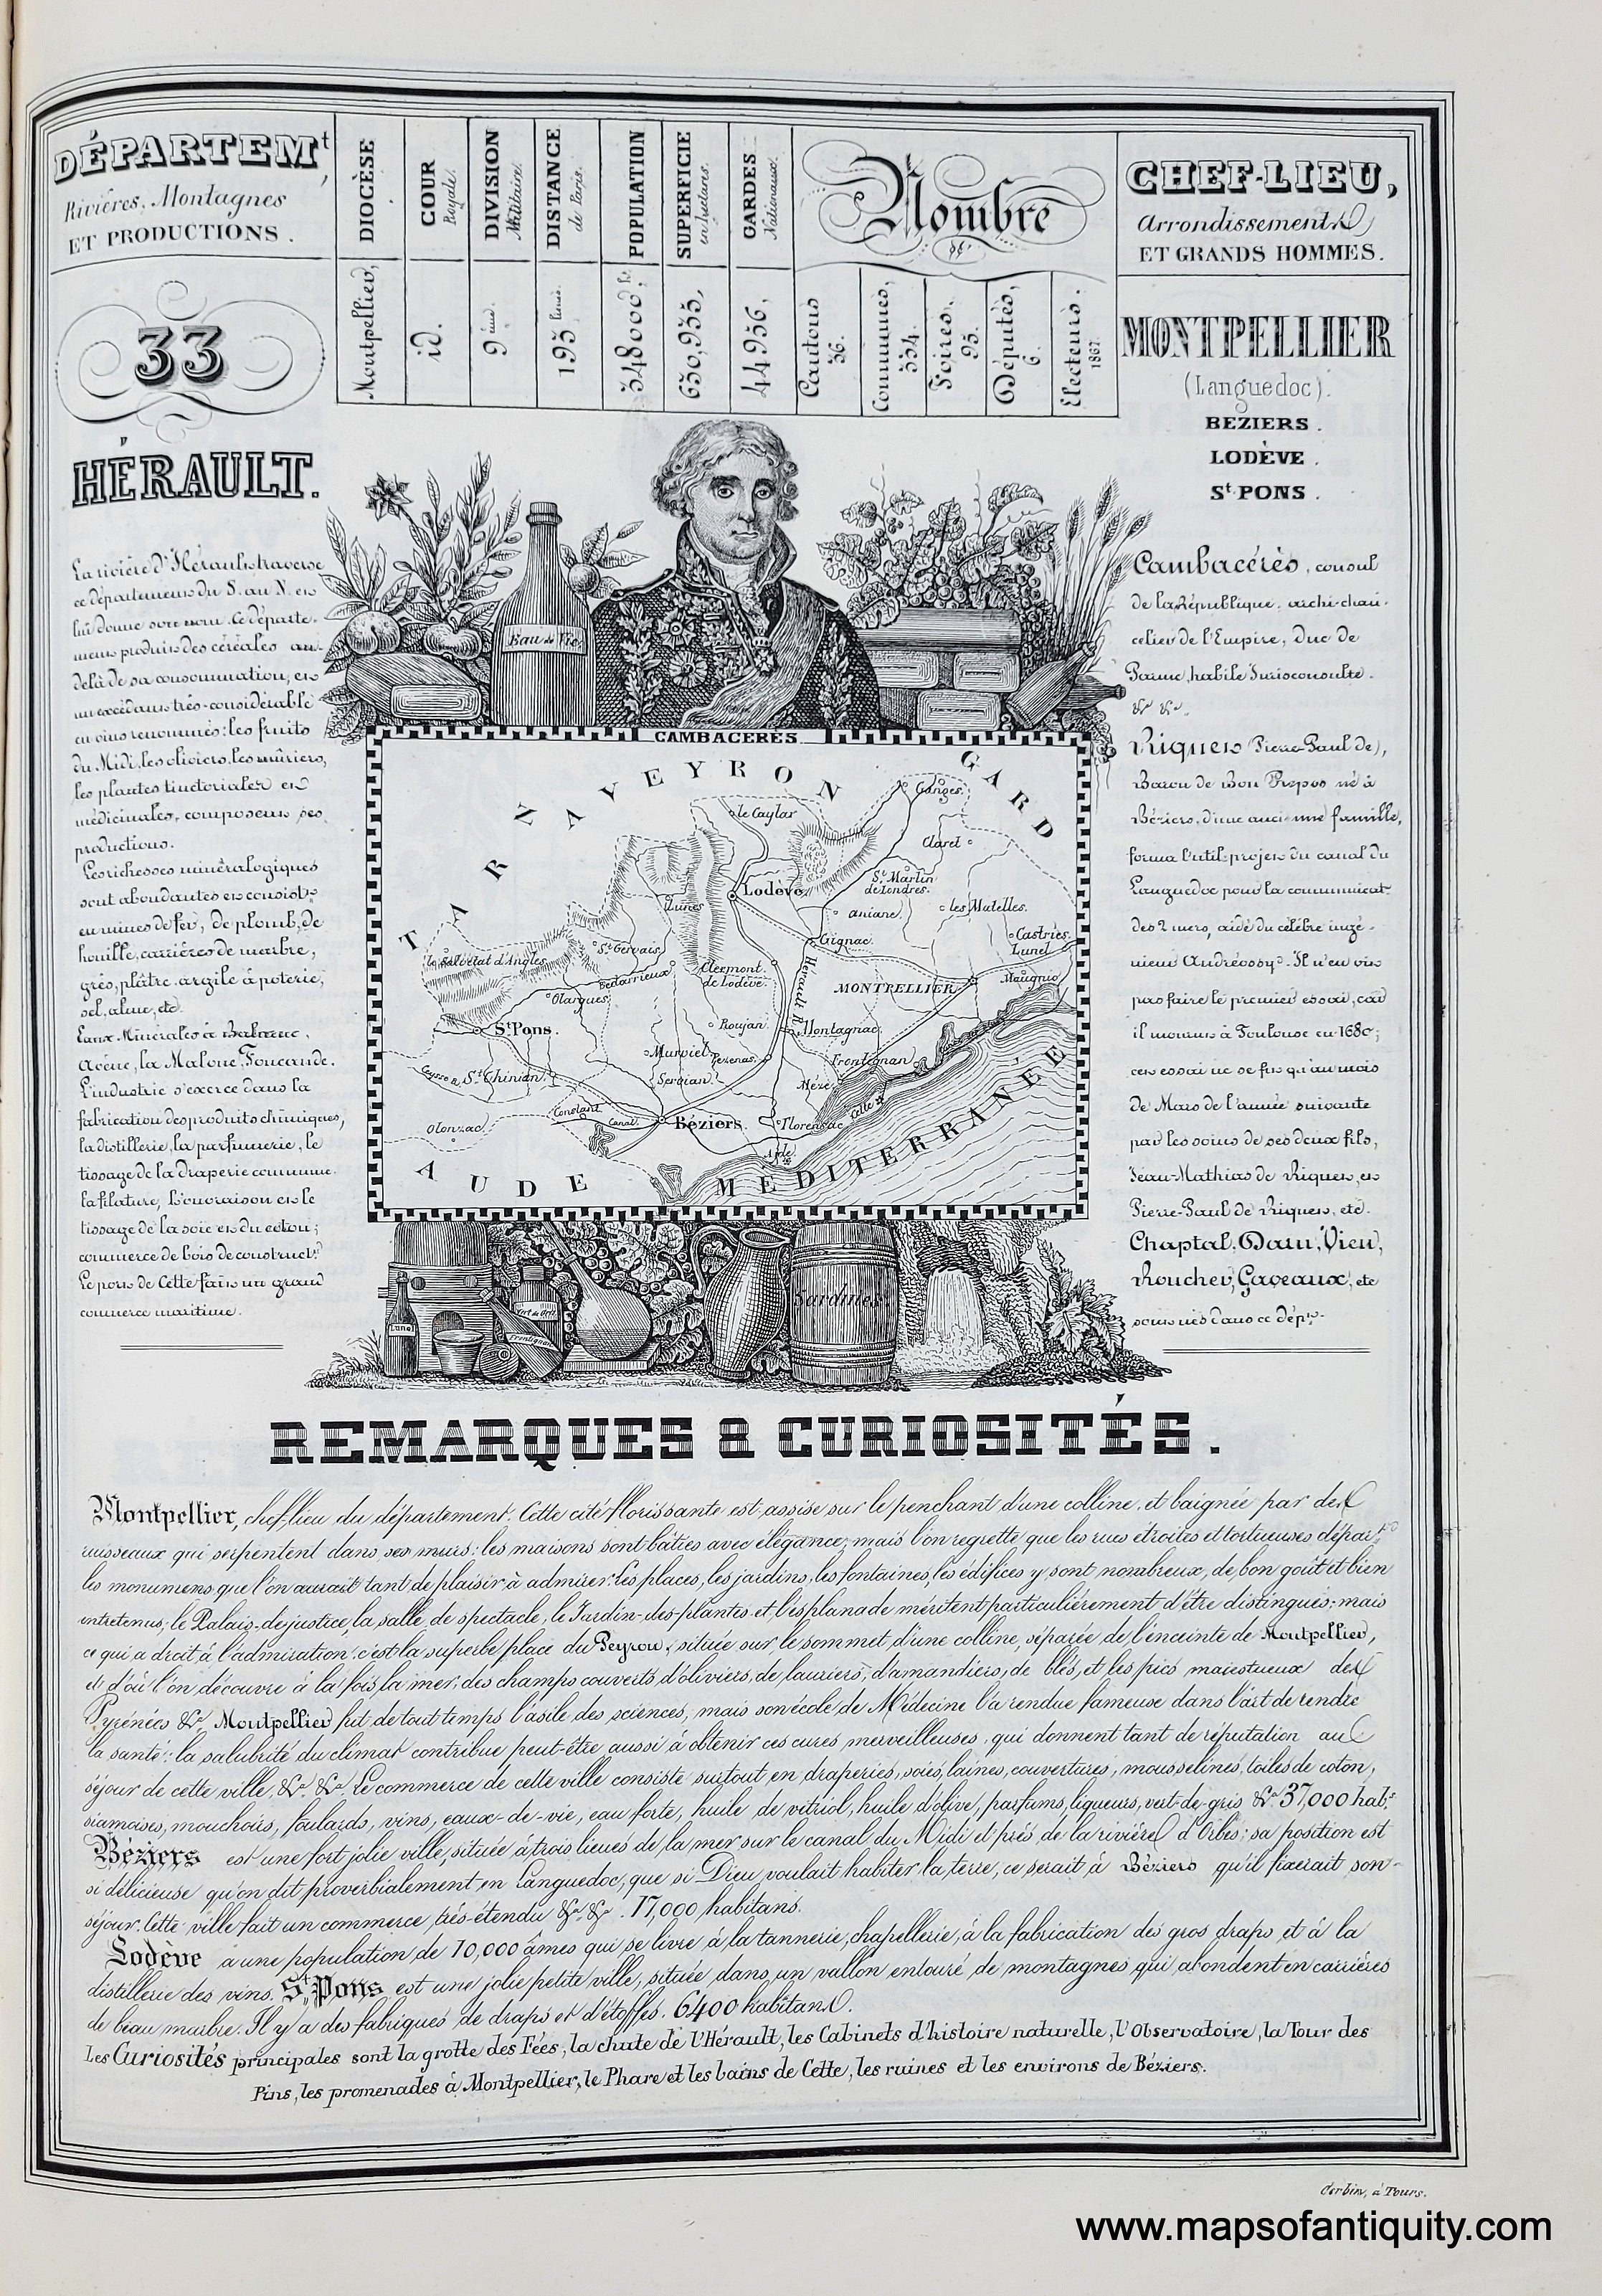 DÉPARTEM.t
Rivières, Montagnes
ET PRODUCTIONS.
DIOCÈSE
COUR
Royale.
DIVISION
Militaire.
DISTANCE
de Paris.
POPULATION
SUPERFICIE
en hectares.
GARDES
Nationaux.
Nombre
de
CHEF-LIEU,
Arrondissements
ET GRANDS HOMMES.
33
Montpellier,
id.
9
195 lieues.
348000
630,935,
44956,
Cantons
36.
Communes,
334.
Foires,
95.
Députés,
6.
Electeurs.
1867.
MONTPELLIER
(Languedoc).
BEZIERS.
LODÈVE.
St. PONS.
HÉRAULT.
La rivière d'Hérault traverse
ce département du S. au N. et
lui donne son nom. Ce départe-
ment produit des céréales au-
delà de sa consommation, et
un excédant très-considérable
en vins renommés: les fruits
du Midi, les oliviers, les mûriers,
les plantes tinctoriales et
médicinales, composent ses
productions.
Les richesses minéralogiques
sont abondantes et consist.t
en mines de fer, de plomb, de
houille, carrières de marbre,
grès, plâtre, argile à poterie,
sel, alun, etc.
Eaux Minérales à Balaruc,
Avène, la Malou, Foncaude.
L'industrie s'exerce dans la
fabrication des produits chimiques,
la distillerie, la parfumerie, le
tissage de la draperie commune.
la filature, l'ouvraison et le
tissage de la soie et du coton;
commerce de bois de construct.n
Le port de Cette fait un grand
commerce maritime.
Eau de Vie
CAMBACÉRÈS
TARN
AVEYRON
GARD
AUDE
MÉDITERRANÉE
Ganges.
le Caylar
Claret
Lodève
St. Martin
de Londres.
Lunas
Aniane.
les Matelles.
Castries.
Lunel
Gignac.
St. Gervais
la Salvetat d'Angles
Bédarrieux
Clermont
de Lodève.
Hérault R.
Olargues
MONTPELLIER
Mauguio
St. Pons.
Roujan.
Montagnac
Murviel
Pezenas.
Frontignan
St. Chinian.
Servian.
Mèze
Cette
Olonzac.
Canal.
Béziers.
Florensac
Agde
Cambacérès, consul
de la République, archi-chan-
celier de l'Empire, duc de
Parme, habile Jurisconsulte.
&a &a.
Riquet (Pierre-Paul de),
Baron de Bon Repos né à
Béziers, d'une ancienne famille,
forma l'util-projet du canal du
Languedoc pour la communicat.
des 2 mers, aidé du célèbre ingé-
nieur Andréossy. Il n'en vit
pas faire le premier essai, car
il mourut à Toulouse en 1680;
cet essai ne se fit qu'au mois
de Mars de l'année suivante
par les soins de ses deux fils,
Jean-Mathias de Riquet, et
Pierre-Paul de Riquet, etc.
Chaptal, Daru, Vien,
Roucher, Gaveaux, etc
sont nés dans ce dép.t
Lunel
Frontignan
Vert de Gris
Sardines
REMARQUES & CURIOSITÉS.
Montpellier, chef-lieu du département. Cette cité florissante est assise sur le penchant d'une colline, et baignée par des
ruisseaux qui serpentent dans ses murs: les maisons sont bâties avec élégance, mais l'on regrette que les rues étroites et tortueuses départ.t
les monumens que l'on aurait tant de plaisir à admirer. les places, les jardins, les fontaines, les édifices y sont nombreux, de bon goût et bien
entretenus; le Palais-de-justice, la salle de spectacle, le Jardin-des-plantes et l'esplanade méritent particulièrement d'être distingués; mais
ce qui a droit à l'admiration c'est la superbe place du Peyrou, située sur le sommet d'une colline, séparée de l'enceinte de Montpellier,
et d'où l'on découvre à la fois, la mer, des champs couverts d'oliviers, de lauriers, d'amandiers, de blés, et les pics majestueux des
Pyrénées &a. Montpellier fut de tout temps l'asile des sciences, mais son école de Médecine l'a rendue fameuse dans l'art de rendre
la santé: la salubrité du climat contribue peut-être aussi à obtenir ces cures merveilleuses, qui donnent tant de réputation au
séjour de cette ville, &a. &a. Le commerce de cette ville consiste surtout en draperies, soies, laines, couvertures, mousselines, toiles de coton,
siamoises, mouchoirs, foulards, vins, eaux-de-vie, eau forte, huile de vitriol, huile d'olive, parfums, liqueurs, vert-de-gris &a. 37,000 hab.s
Béziers est une fort jolie ville, située à trois lieues de la mer sur le canal du Midi et près de la rivière d'Orbes; sa position est
si délicieuse qu'on dit proverbialement en Languedoc, que si Dieu voulait habiter la terre, ce serait à Béziers qu'il fixerait son-
séjour. Cette ville fait un commerce très-étendu &a. &a. 17,000 habitans.
Lodève a une population de 10,000 âmes qui se livre à la tannerie, chapellerie, à la fabrication des gros draps et à la
distillerie des vins. St. Pons est une jolie petite ville, située dans un vallon entouré de montagnes qui abondent en carrières
de beau marbre. Il y a des fabriques de draps et d'étoffes. 6400 habitans.
Les Curiosités principales sont la grotte des Fées, la chute de l'Hérault, les Cabinets d'histoire naturelle, l'Observatoire, la Tour des
Pins, les promenades à Montpellier, le Phare et les bains de Cette, les ruines et les environs de Béziers.
Corbin, à Tours.
www.mapsofantiquity.com